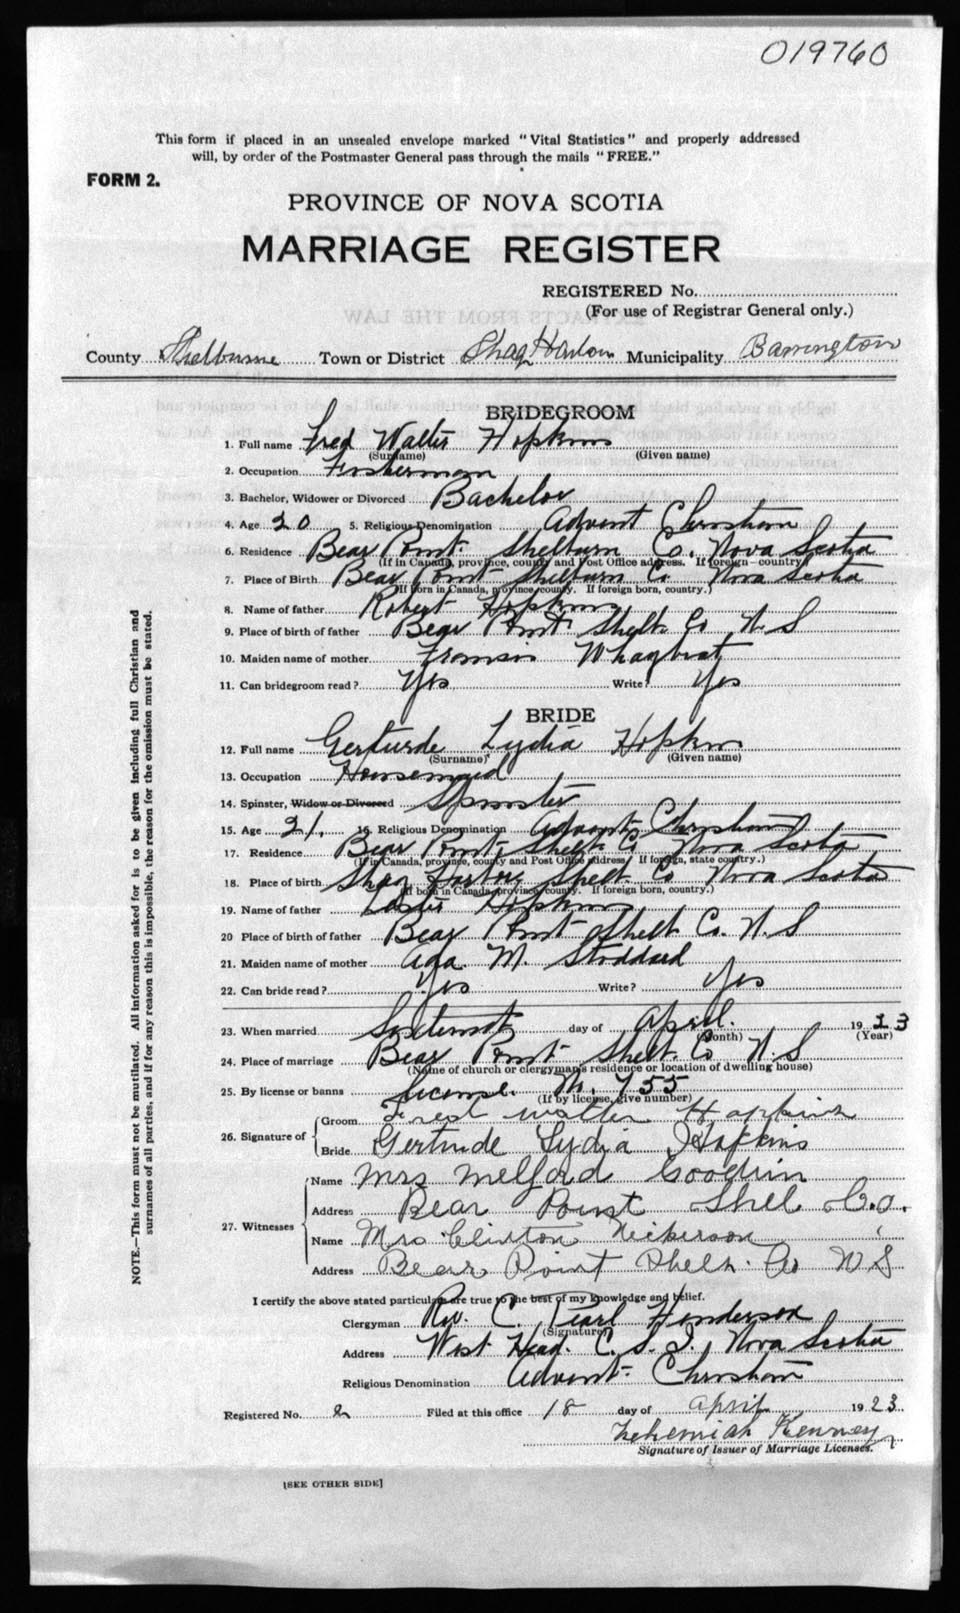 019760
This form if placed in an unsealed envelope marked "Vital Statistics" and properly addressed
will, by order of the Postmaster General pass through the mails "FREE."
FORM 2.
PROVINCE OF NOVA SCOTIA
MARRIAGE REGISTER
REGISTERED No.
(For use of Registrar General only.)
County Shelburne Town or District Shag Harbour Municipality Barrington
BRIDEGROOM
1. Full name Fred Walter Hopkins
(Surname) (Given name)
2. Occupation Fisherman
3. Bachelor, Widower or Divorced Bachelor
4. Age 20 5. Religious Denomination Advent Christian
6. Residence Bear Point Shelburn Co. Nova Scotia
(If in Canada, province, county and Post Office address. If foreign—country)
7. Place of Birth Bear Point Shelburn Co Nova Scotia
(If born in Canada, province, county. If foreign born, country.)
8. Name of father Robert Hopkins
9. Place of birth of father Bear Point Shelb. Co N S
10. Maiden name of mother
11. Can bridegroom read? Yes Write? Yes
BRIDE
12. Full name Gerturde Lydia Hopkins
(Surname) (Given name)
13. Occupation Housemaid
14. Spinster, Widow or Divorced Spinster
15. Age 21. 16. Religious Denomination Advent Christian
17. Residence Bear Point, Shelb. Co Nova Scotia
(If in Canada, province, county and Post Office address. If foreign, state country.)
18. Place of birth Shag Harbor Shelb. Co Nova Scotia
(If born in Canada, province, county. If foreign born, country.)
19. Name of father Hopkins
20 Place of birth of father Bear Point Shelb. Co. N.S
21. Maiden name of mother Ada M. Stoddard
22. Can bride read? Yes Write? Yes
23. When married day of April. 1923
(Month) (Year)
24. Place of marriage Bear Point Shelb. Co N S
(Name of church or clergyman's residence or location of dwelling house)
25. By license or banns License. No. 755
(If by license, give number)
26. Signature of
Groom Fred Walter Hopkins
Bride Gertrude Lydia Hopkins
27. Witnesses
Name Mrs Melford Goodwin
Address Bear Point Shel. Co.
Name Mrs Clinton Nickerson
Address Bear Point Shelb. Co N S
I certify the above stated particulars are true to the best of my knowledge and belief.
Clergyman Rev. C. Pearl Henderson
(Signature)
Address West Head. C. S. I. Nova Scotia
Religious Denomination Advent Christian
Registered No. 2 Filed at this office 18 day of April 1923
Nehemiah Kenney
Signature of Issuer of Marriage Licenses.
[SEE OTHER SIDE]
NOTE.—This form must not be mutilated. All information asked for is to be given including full Christian and
surnames of all parties, and if for any reason this is impossible, the reason for the omission must be stated.